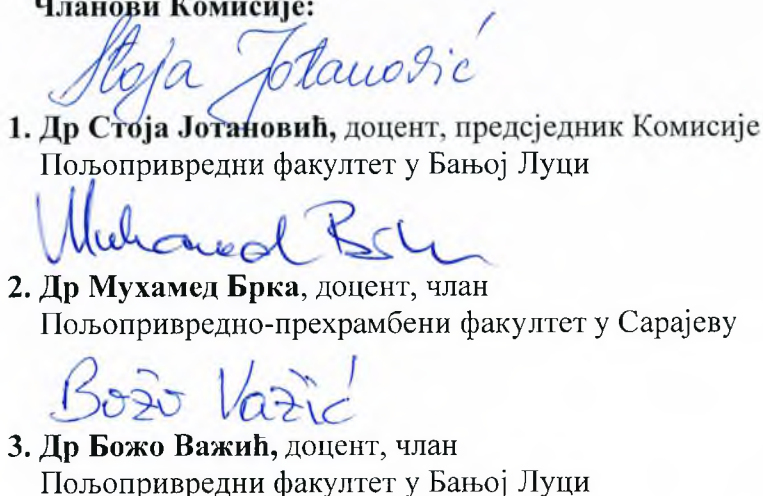 Чланови Комисије:
Stoja Jotanović
1. Др Стоја Јотановић, доцент, предсједник Комисије
Пољопривредни факултет у Бањој Луци
Muhamed Brka
2. Др Мухамед Брка, доцент, члан
Пољопривредно-прехрамбени факултет у Сарајеву
Božo Važić
3. Др Божо Важић, доцент, члан
Пољопривредни факултет у Бањој Луци